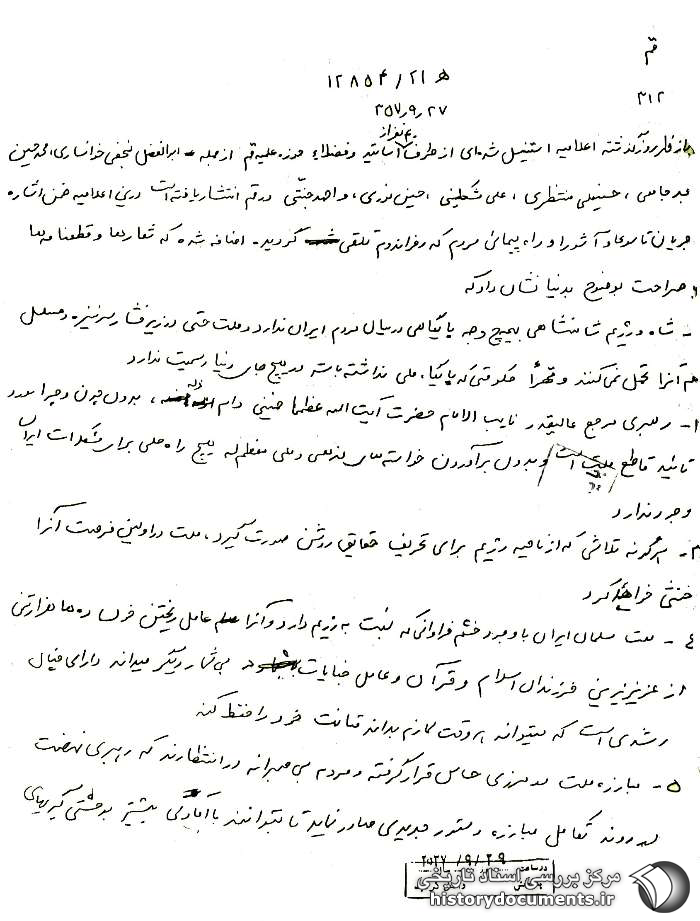 قم
۳۱۲
۱۲۸۵۴ / ۲۱ ﻫ
۲۵۷,۹,۲۷
از روز گذشته اعلامیه استنسیل شده‌ای از طرف نفر از اساتید و فضلاء حوزه علمیه قم از جمله ـ ابوالفضل نجفی خوانساری، محمدحسین
، حسینعلی منتظری، علی مشکینی، حسین نوری، و احمد جنتی در قم انتشار یافته است در این اعلامیه ضمن اشاره
جریان تاسوعا و آشورا و راه پیمائی مردم که رفراندوم تلقی گردید. اضافه شده که شعارها و قطعنامه‌ها
صراحت بوضوح بدنیا نشان داد که
- شاه و رژیم شاهنشاهی بهیچ وجه پایگاهی در میان مردم ایران ندارد و ملت حتی در زیر فشار سرنیزه و مسلسل
هم آنرا تحمل نمی‌کنند و قهراً حکومتی که پایگاه ملی نداشته باشد در هیچ جای دنیا رسمیت ندارد
- رهبری مرجع عالیقدر نایب الامام حضرت آیت الله عظما خمینی دام ، بدون چون و چرا مورد
تائید قاطع ملت است و بدون برآوردن خواسته‌های مذهبی و ملی معظم له هیچ راه حلی برای مشکلات ایران
وجود ندارد
۳- هرگونه تلاشی که از ناحیه رژیم برای تحریف حقایق روشن صورت گیرد، ملت در اولین فرصت آنرا
خنثی خواهد کرد
٤- ملت مسلمان ایران با وجود خشم فراوانی که نسبت به رژیم دارد و آنرا عامل ریختن خون ده‌ها هزار تن
از عزیزترین فرزندان اسلام و قرآن و عامل جنایات بی شمار دیگر میداند دارای چنان
رشدی است که میتواند هر وقت لازم بداند متانت خود را حفظ کند
۵- مبارزه ملت در مرزی حساس قرار گرفته و مردم بی صبرانه در انتظارند که رهبری نهضت
در روند تکامل مبارزه دستور جدیدی صادر نماید تا بتوانند با آمادگی بیشتر به گیریهای
۲۵۳۷ /۹/ ۲۹
مرکز بررسی اسناد تاریخی
historydocuments.ir